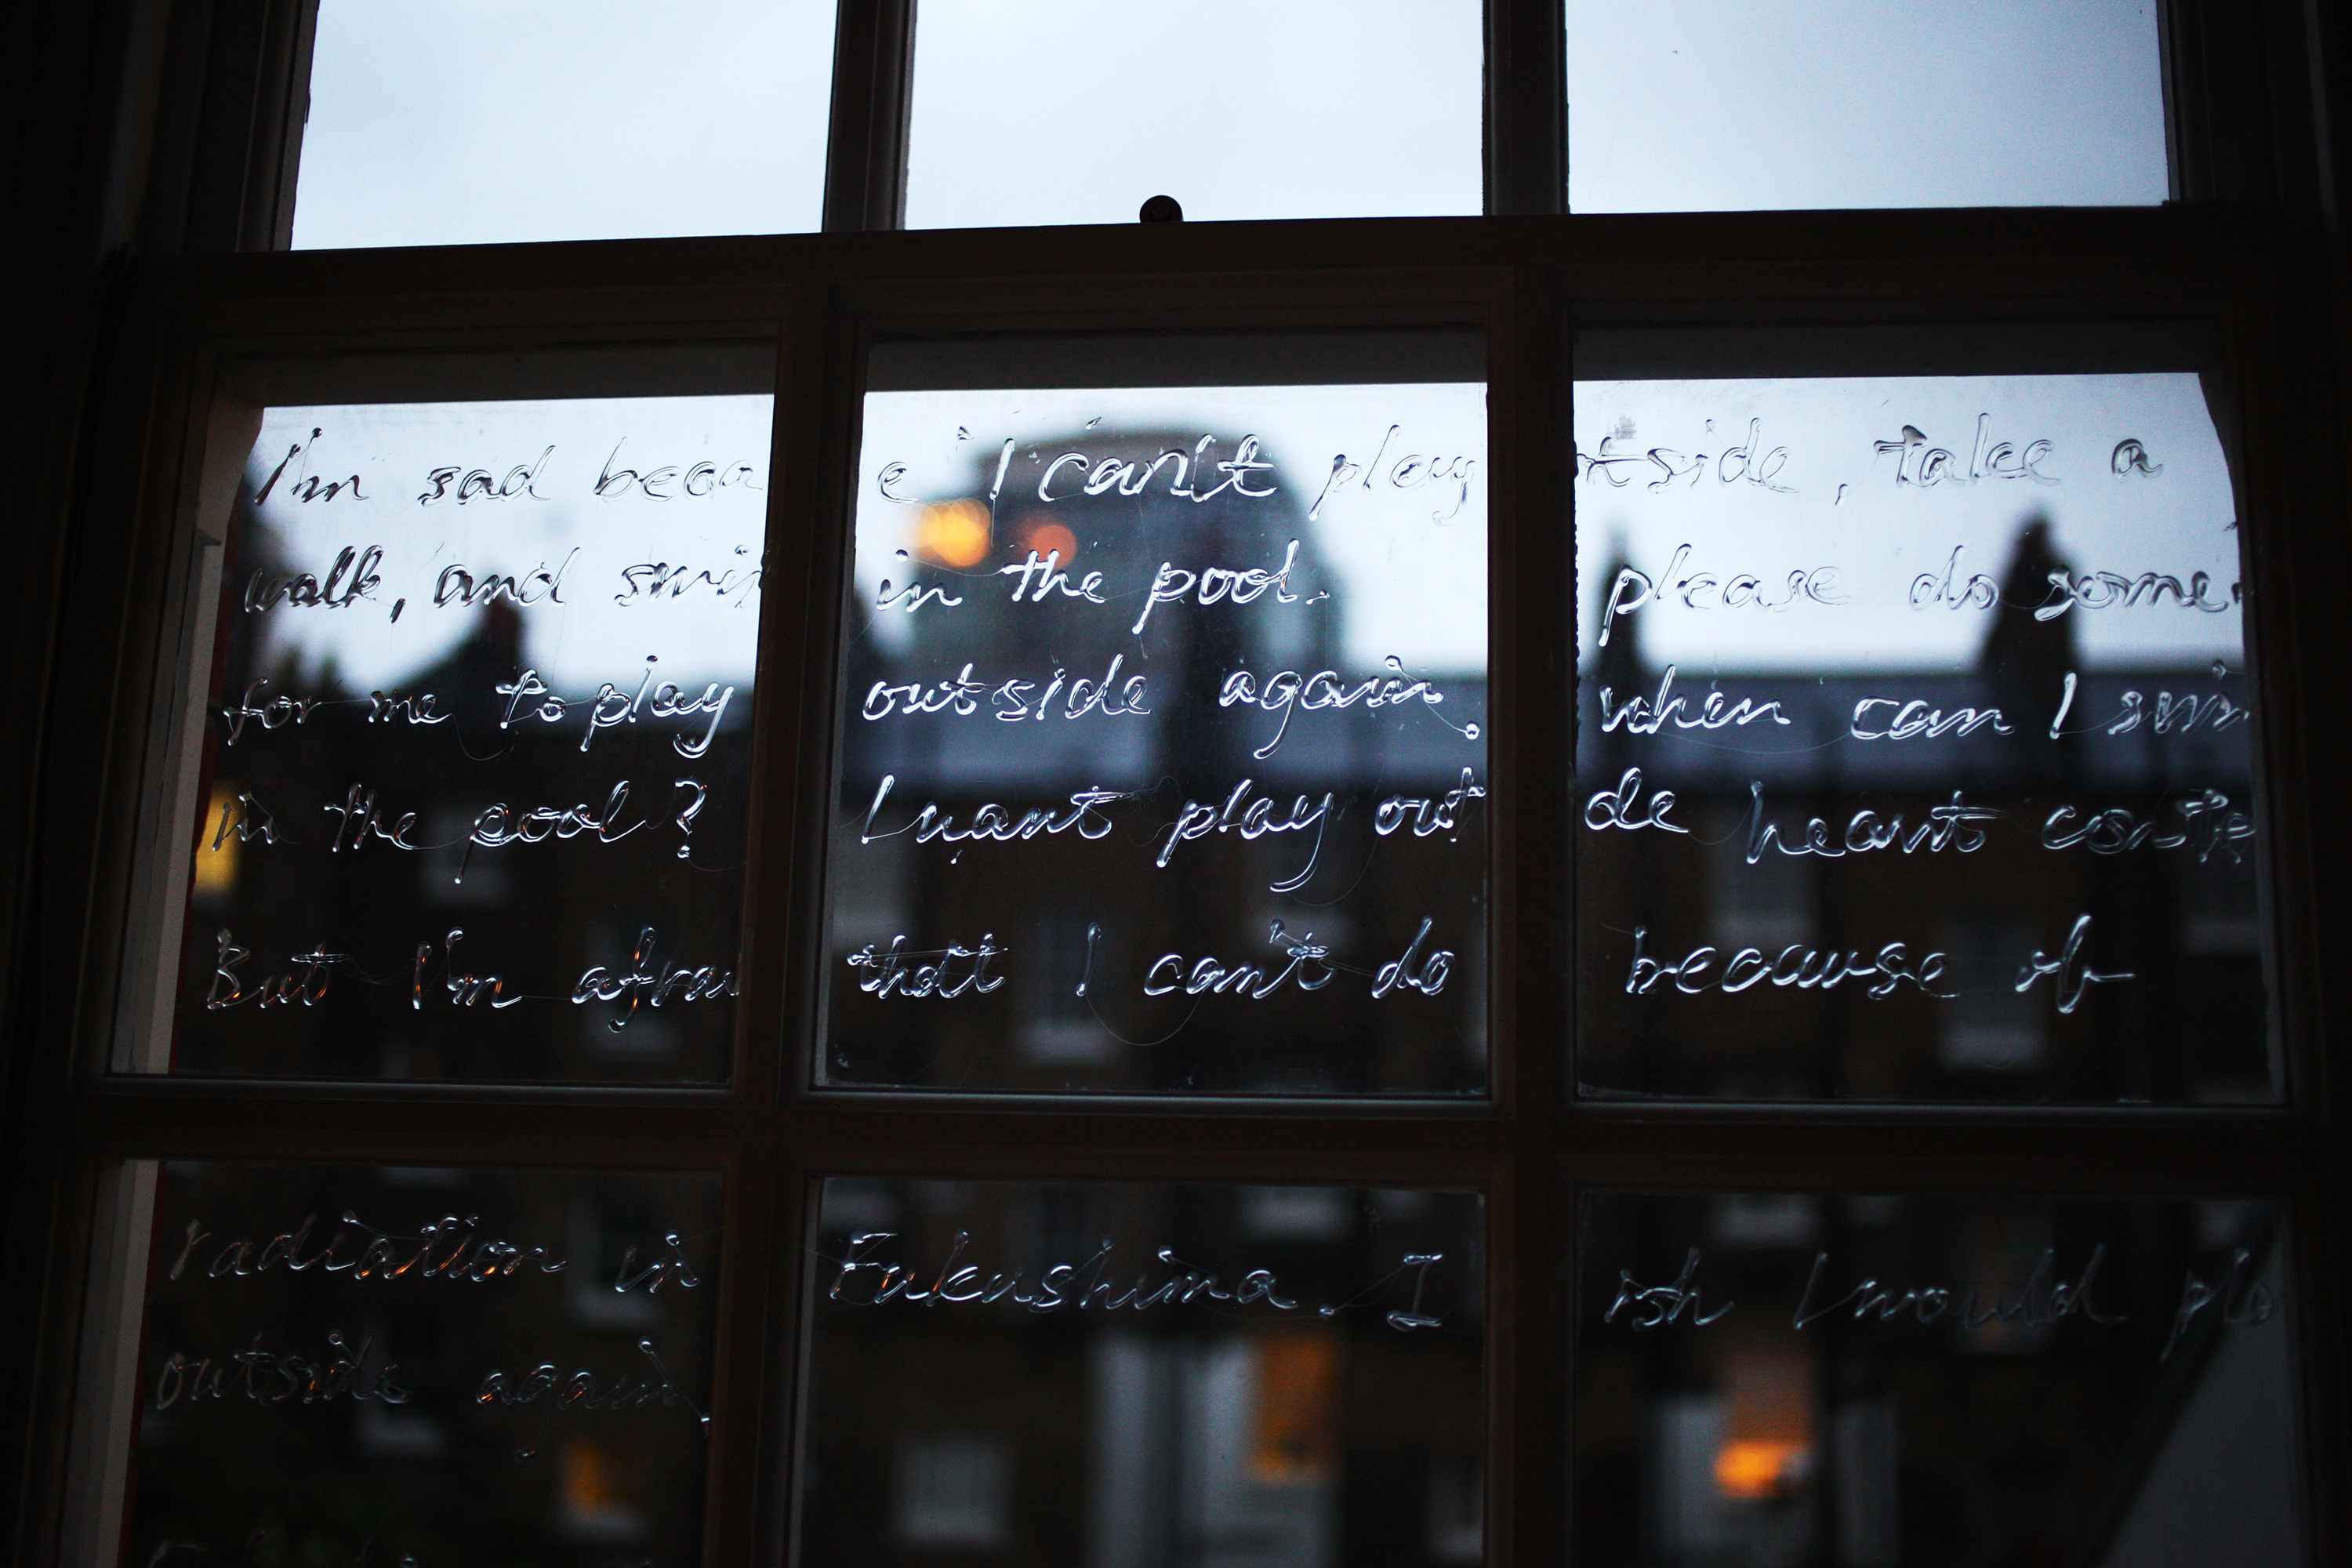 I'm sad becau e I can't play tside, take a
walk, and swi in the pool. please do some
for me to play outside again. when can I swim
in the pool? I want play out de heart conte
But I'm afrai that I can't do because of
radiation in Fukushima. I ish I would pla
outside again